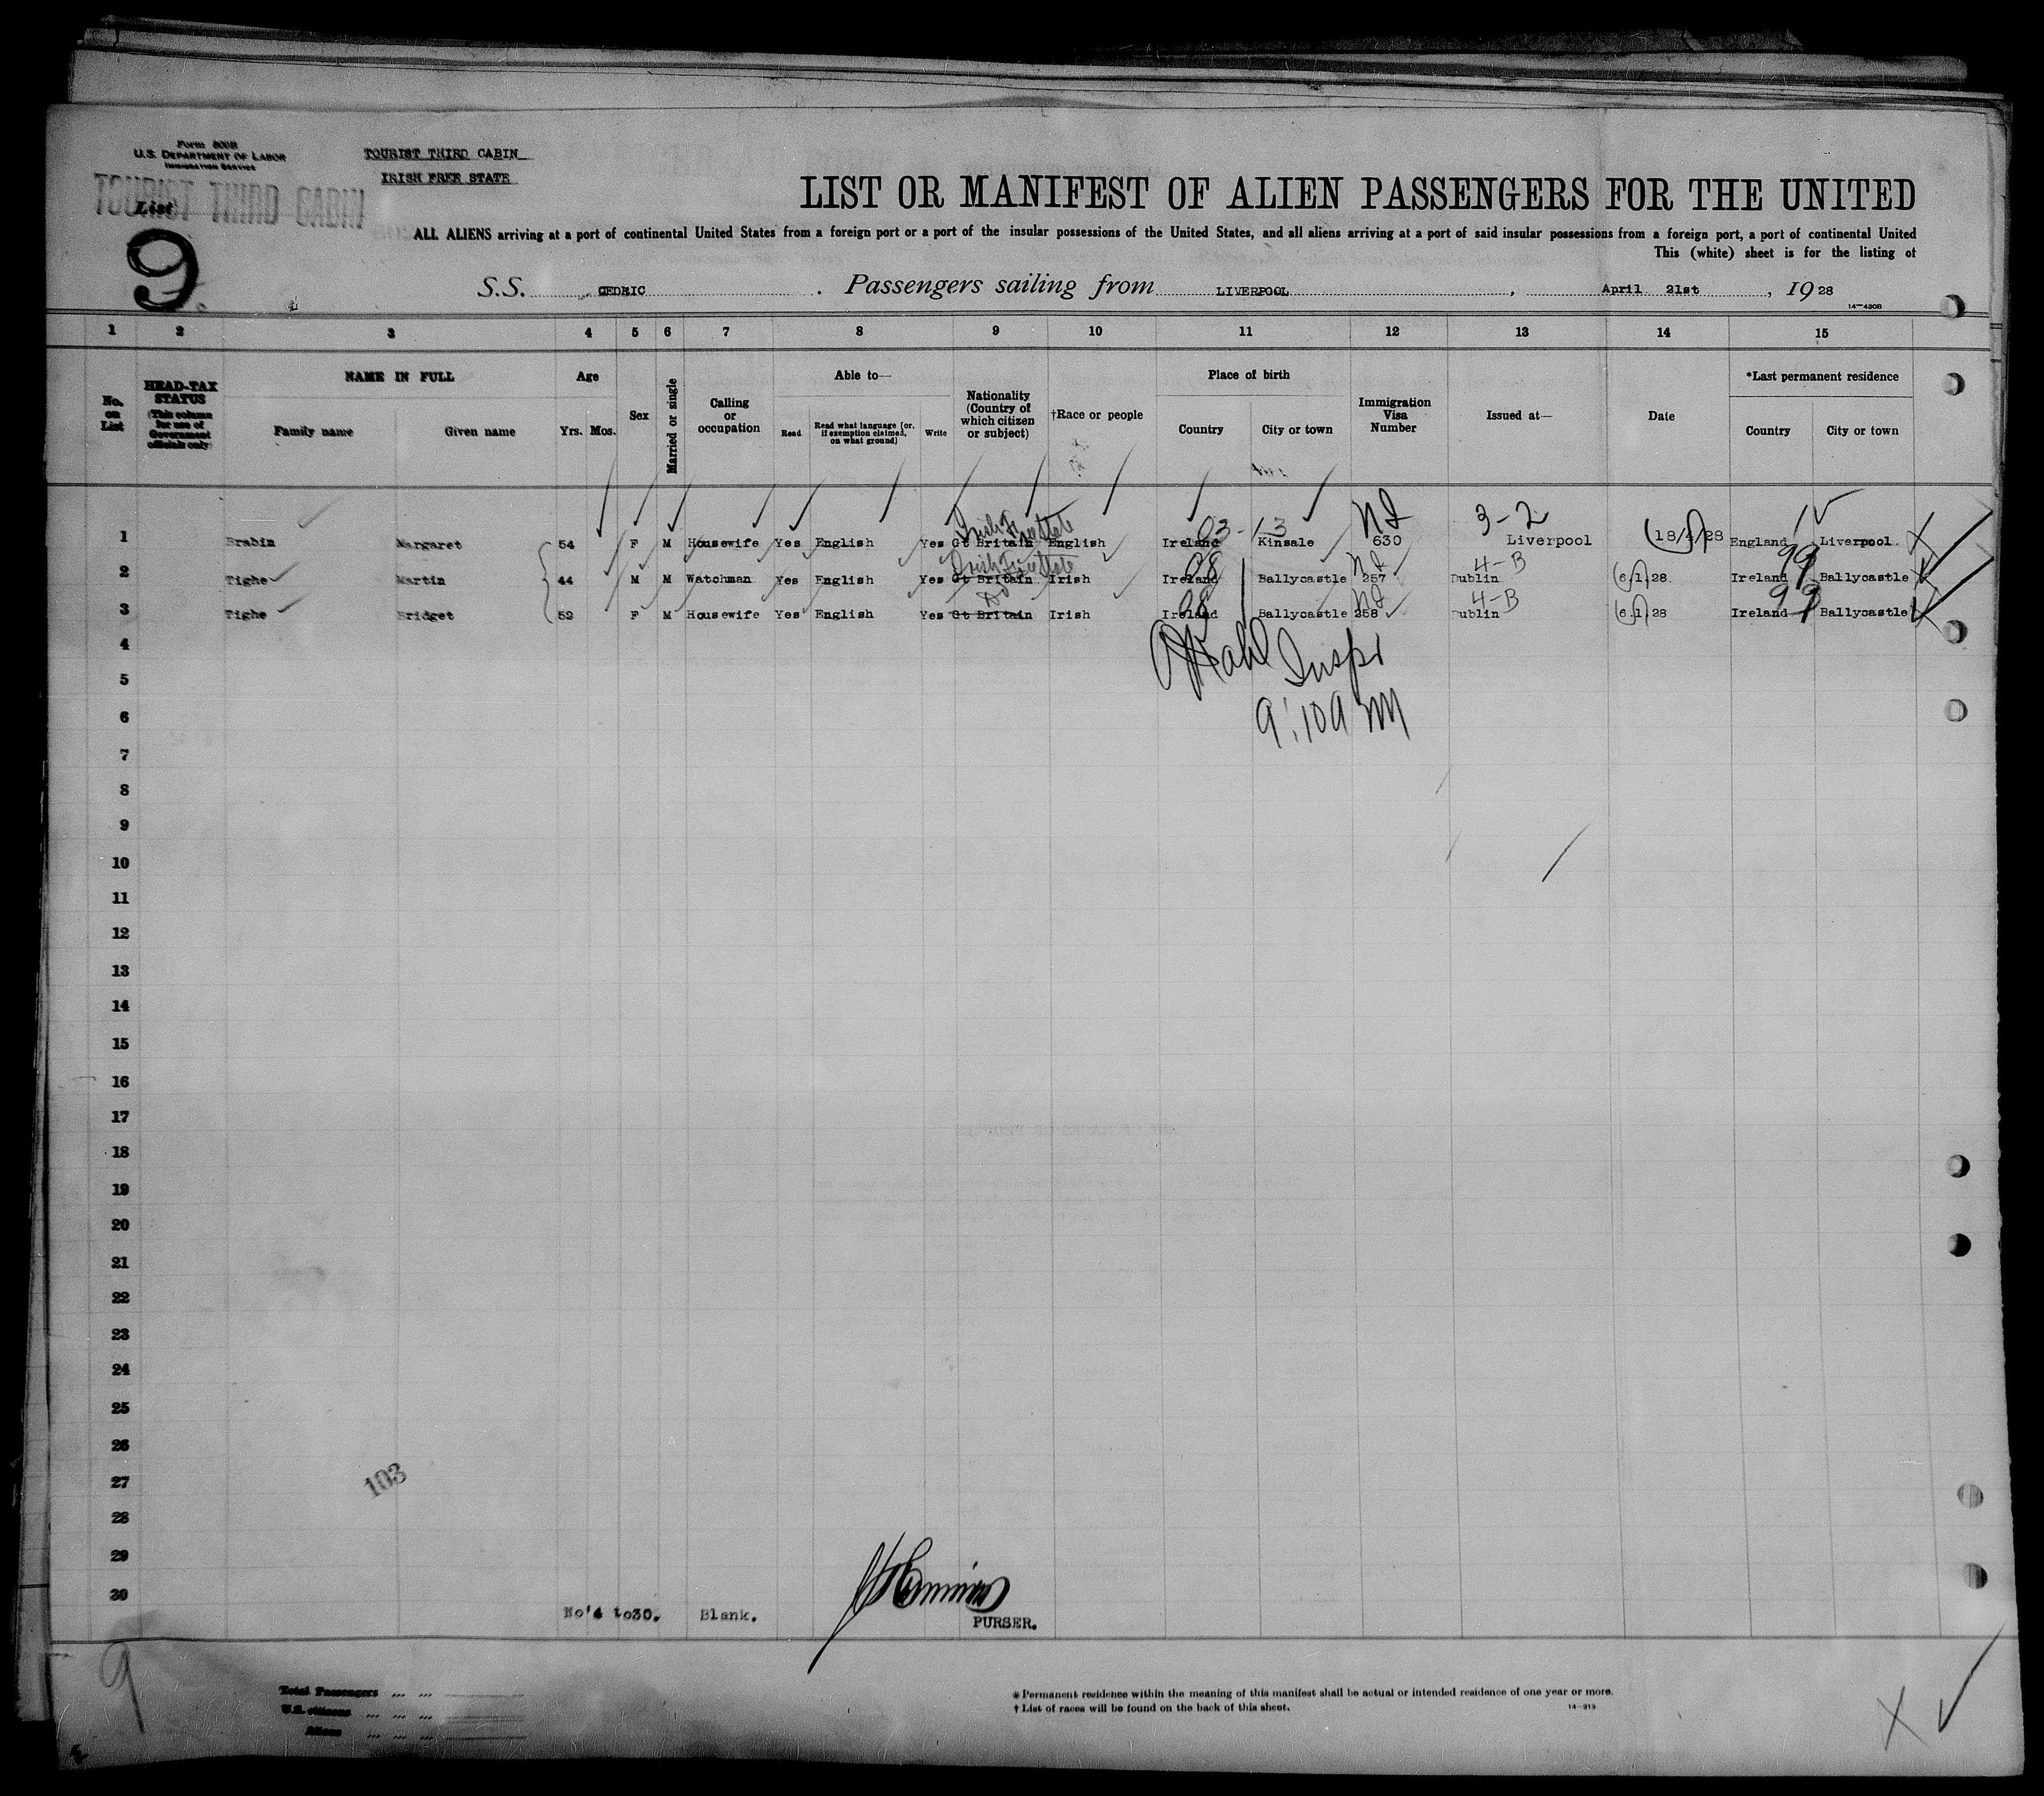 Form 500B
U.S. DEPARTMENT OF LABOR
IMMIGRATION SERVICE
TOURIST THIRD CABIN
IRISH FREE STATE
TOURIST THIRD CABIN
List
9
LIST OR MANIFEST OF ALIEN PASSENGERS FOR THE UNITED
ALL ALIENS arriving at a port of continental United States from a foreign port or a port of the insular possessions of the United States, and all aliens arriving at a port of said insular possessions from a foreign port, a port of continental United
This (white) sheet is for the listing of
S.S. CEDRIC. Passengers sailing from LIVERPOOL, April 21st, 1928
14-4208
1 2 3 4 5 6 7 8 9 10 11 12 13 14 15
No. on List
HEAD-TAX STATUS (This column for use of Government officials only)
NAME IN FULL
Family name Given name
Age
Yrs. Mos.
Sex
Married or single
Calling or occupation
Able to—
Read Read what language [or, if exemption claimed, on what ground] Write
Nationality (Country of which citizen or subject)
†Race or people
Place of birth
Country City or town
Immigration Visa Number
Issued at—
Date
*Last permanent residence
Country City or town
Irish Free State 03-13 NI 3-2
1 Brabin Margaret 54 F M Housewife Yes English Yes Gt Britain English Ireland Kinsale 630 Liverpool 18/4/28 England Liverpool
Irish Free State 08 NI 4-B 99
2 Tighe Martin 44 M M Watchman Yes English Yes Gt Britain Irish Ireland Ballycastle 257 Dublin 6.1.28 Ireland Ballycastle
Do 08 NI 4-B 99
3 Tighe Bridget 52 F M Housewife Yes English Yes Gt Britain Irish Ireland Ballycastle 258 Dublin 6.1.28 Ireland Ballycastle
4
Inspr
5
6
9:10 AM
7
8
9
10
11
12
13
14
15
16
17
18
19
20
21
22
23
24
25
26
27
103
28
29
30
No'4 to30. Blank.
PURSER.
9
Total Passengers
U.S. citizens
Aliens
* Permanent residence within the meaning of this manifest shall be actual or intended residence of one year or more.
† List of races will be found on the back of this sheet.
14-213